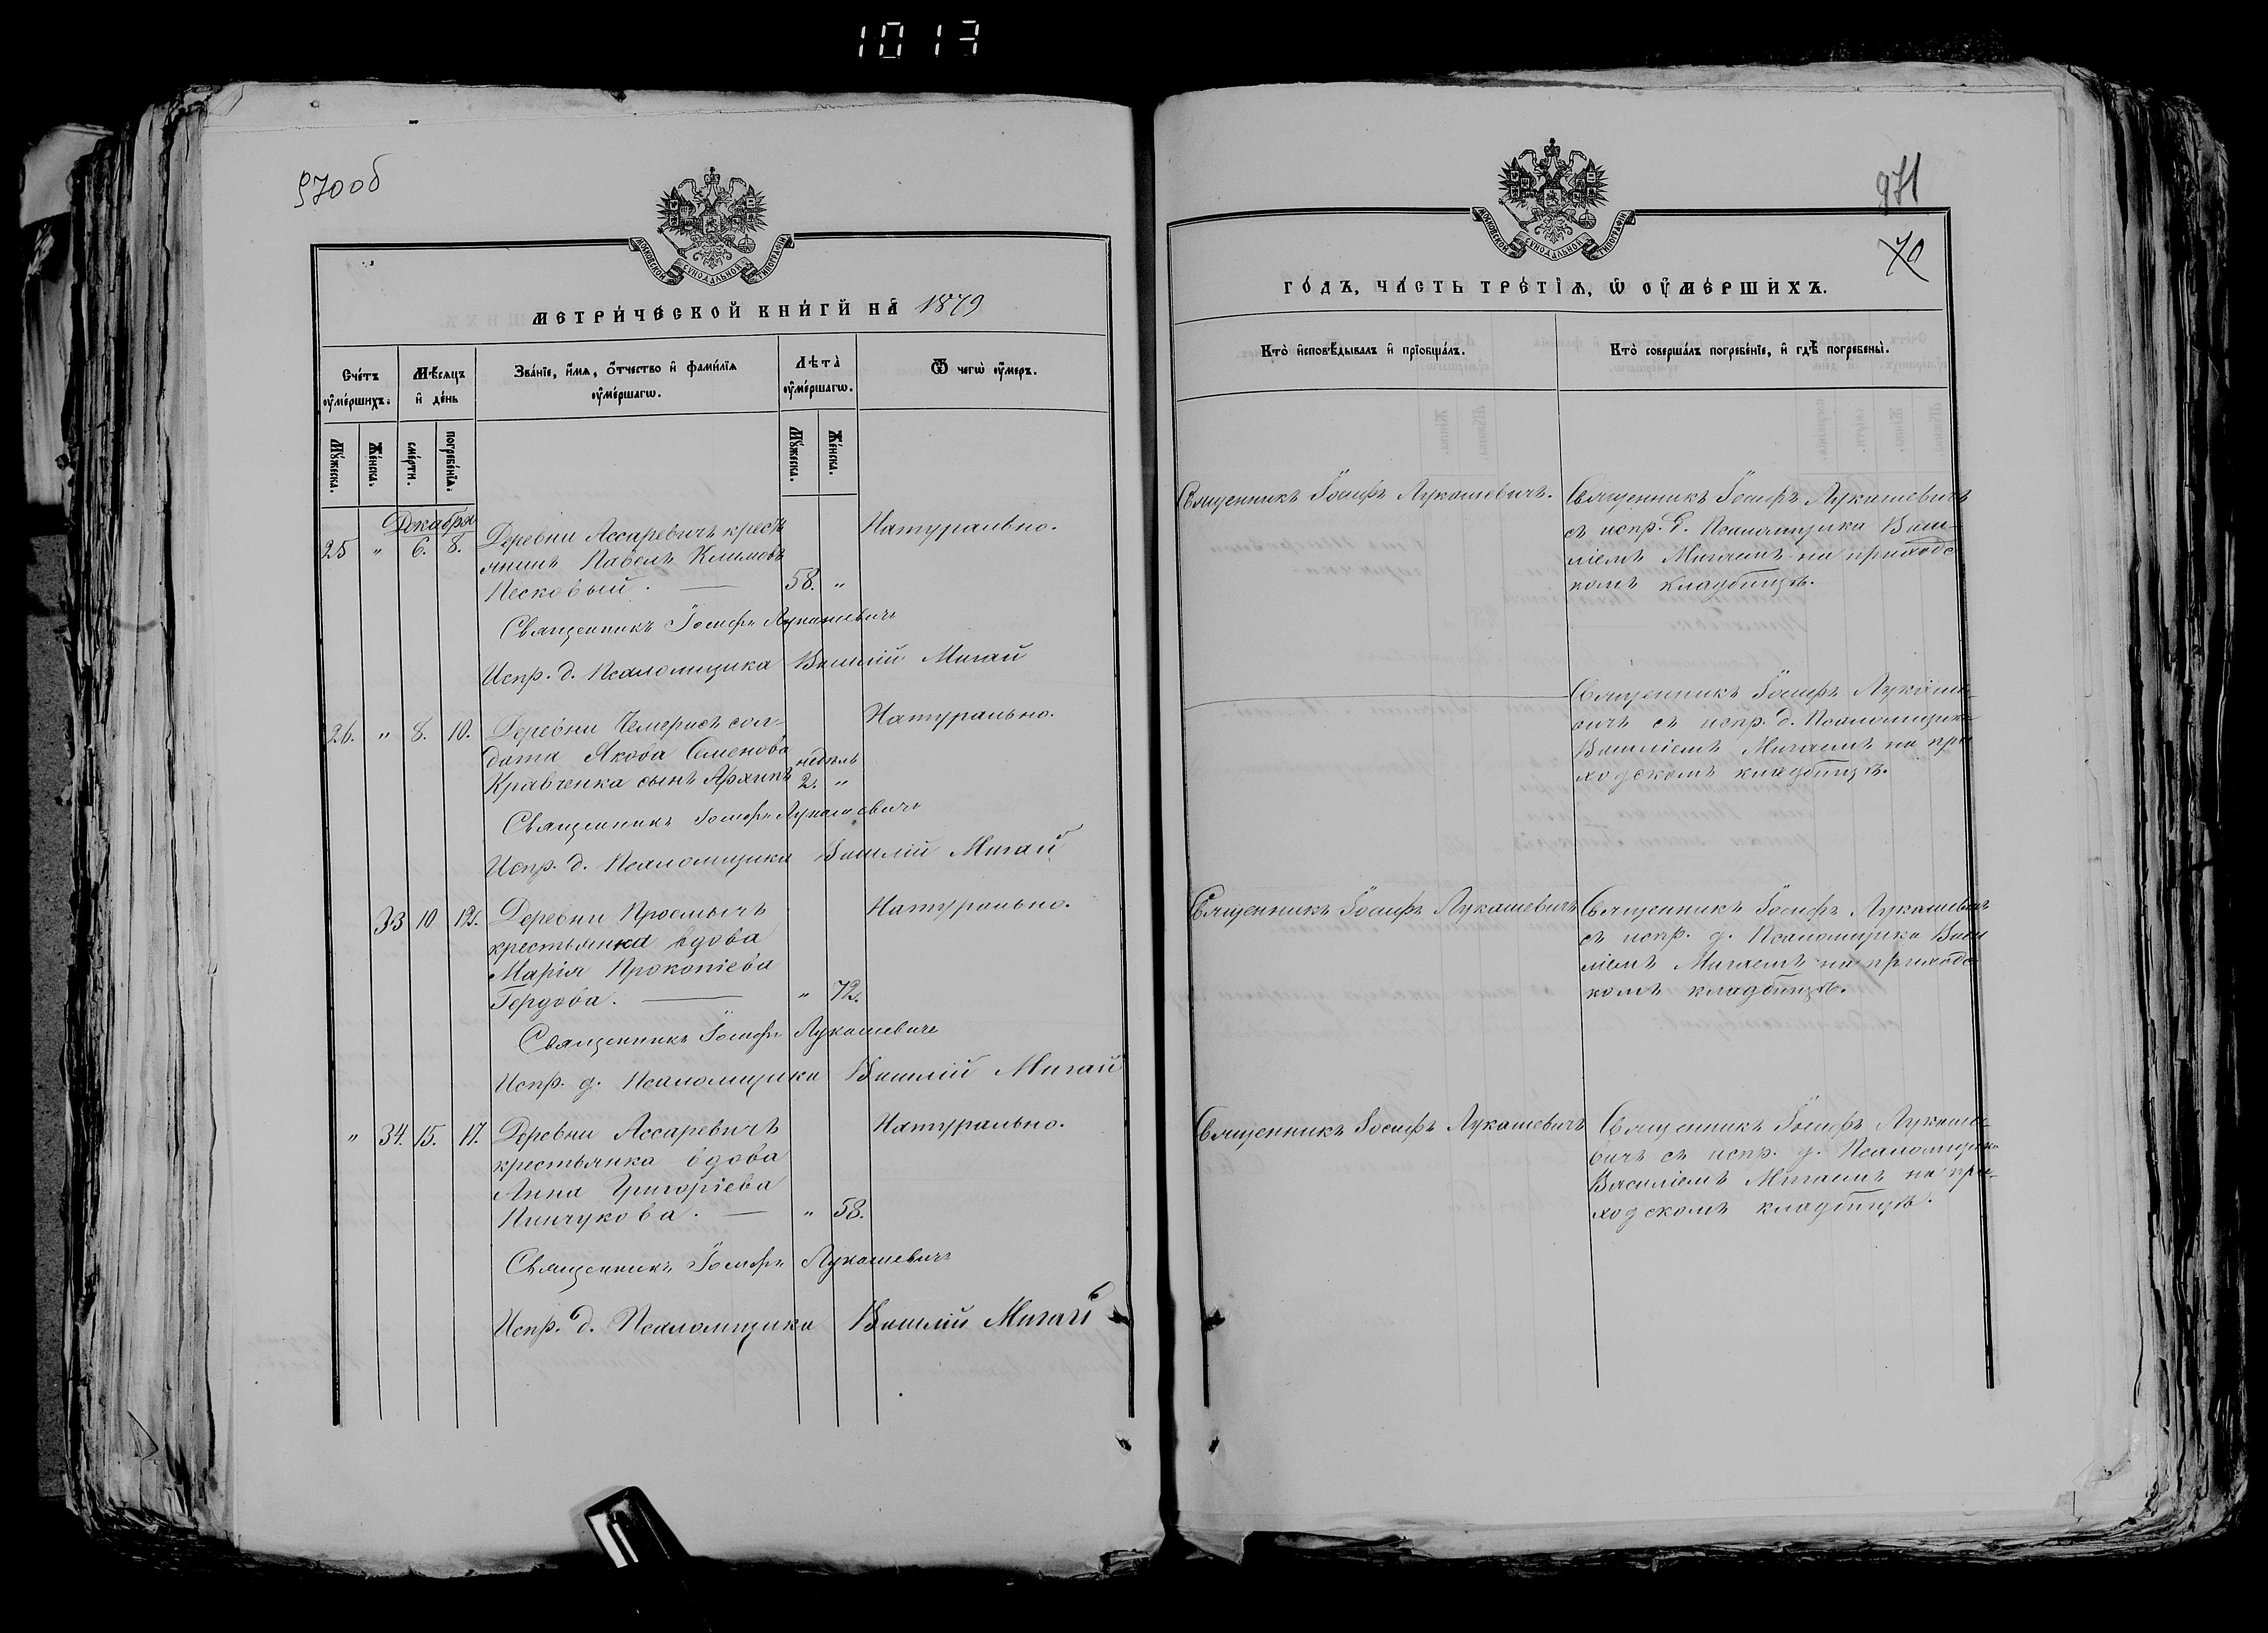 1017
970об
МОСКОВСКОЙ СУНОДАЛЬНОЙ ТИПОГРАФІИ
МЕТРИ́ЧЕСКОЙ КНИ́ГИ НА 1879
Сче́тъ ᲂу҆ме́ршихъ.
Мѣ́сяцъ и҆ де́нь
Зва́нїе, и҆́мѧ, ѻ҆́тчество и҆ фами́лїѧ ᲂу҆ме́ршагѡ.
Лѣ́та ᲂу҆ме́ршагѡ.
Ѿ чегѡ̀ ᲂу҆́меръ.
Мꙋ́жеска.
Же́нска.
сме́рти.
погребе́нїѧ.
Мꙋ́жеска.
Же́нска.
Декабря
25 " 6. 8. Деревни Ассаревичъ кресть
янинъ Павелъ Климовъ
Песковый. — 58. "
Натурально.
Священникъ Іосифъ Лукашевичъ
Испр. д. Псаломщика Василій Мигай
26. " 8. 10. Деревни Чемерисъ сол-
дата Якова Семенова
Кравченка сынъ Архипъ недѣль 2. "
Натурально.
Священникъ Іосифъ Лукашевичъ
Испр. д. Псаломщика Василій Мигай
33 10 12. Деревни
крестьянка вдова
Марія Прокопіева
Гердова. — " 72.
Натурально.
Священникъ Іосифъ Лукашевичъ
Испр. д. Псаломщика Василій Мигай
" 34. 15. 17. Деревни Ассаревичъ
крестьянка вдова
Анна Григоріева
Пинчукова. — " 58.
Натурально.
Священникъ Іосифъ Лукашевичъ
Испр. д. Псаломщика Василій Мигай
971
70
МОСКОВСКОЙ СУНОДАЛЬНОЙ ТИПОГРАФІИ
ГО́ДЪ, ЧА́СТЬ ТРЕ́ТЇѦ, Ѡ҆ ОУ҆МЕ́РШИХЪ.
Кто̀ и҆сповѣ́дывалъ и҆ прїѡбща́лъ.
Кто̀ соверша́лъ погребе́нїе, и҆ гдѣ̀ погребены̀.
Священникъ Іосифъ Лукашевичъ.
Священникъ Іосифъ Лукашевичъ
съ испр. д. Псаломщика Васи-
ліемъ Мигаемъ на приходс
комъ кладбищѣ.
Священникъ Іосифъ Лукаше-
вичъ съ испр. д. Псаломщика
Василіемъ Мигаемъ на при
ходскомъ кладбищѣ.
Священникъ Іосифъ Лукашевичъ
Священникъ Іосифъ Лукашевичъ
съ испр. д. Псаломщика Васи
ліемъ Мигаемъ на приходс
комъ кладбищѣ.
Священникъ Іосифъ Лукашевичъ
Священникъ Іосифъ Лукаше-
вичъ съ испр. д. Псаломщика
Василіемъ Мигаемъ на при-
ходскомъ кладбищѣ.